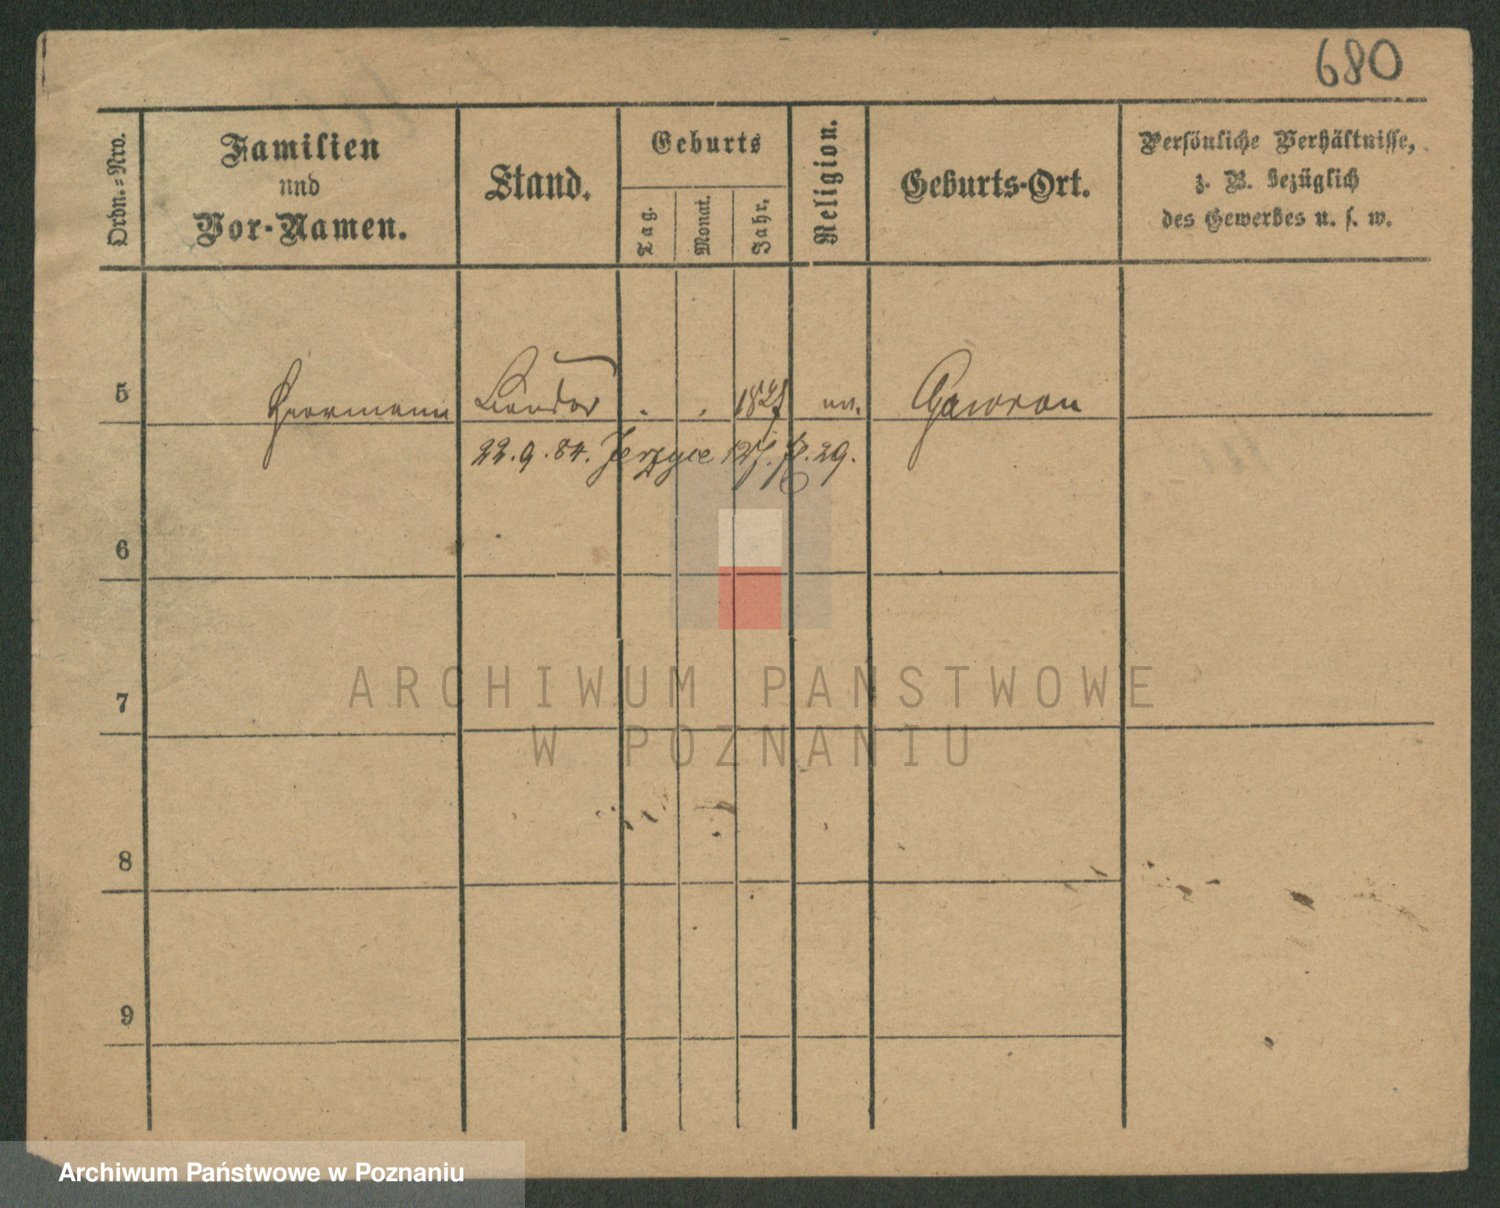 680
Ordn.=Nro.
Familien
und
Vor-Namen.
Stand.
Geburts
Tag.
Monat.
Jahr.
Religion.
Geburts-Ort.
Persönliche Verhältnisse,
z. B. bezüglich
des Gewerbes u. s. w.
5 Herrmann 1827 Gawron
22.9.84. Jerzyce 127. 29.
6
7
8
9
ARCHIWUM PAŃSTWOWE
W POZNANIU
Archiwum Państwowe w Poznaniu